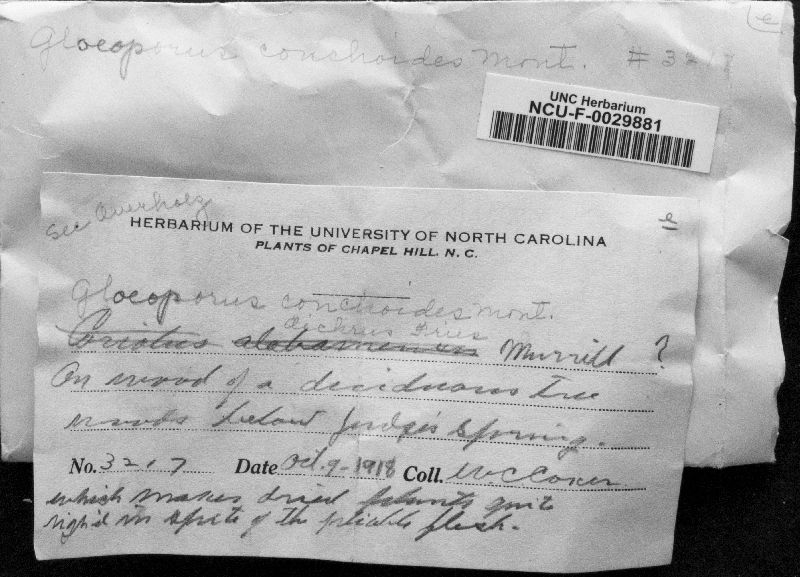 Gloeoporus conchoides Mont. # 3217
e
UNC Herbarium
NCU-F-0029881
See Overholz
e
HERBARIUM OF THE UNIVERSITY OF NORTH CAROLINA
PLANTS OF CHAPEL HILL, N. C.
Gloeoporus conchoides Mont.
dichrous Fries
Coriolus alabamensis Murrill ?
On wood of a deciduous tree
woods below Judge's Spring.
No. 3217 Date Oct. 9-1918 Coll. W C Coker
which makes dried plants quite
rigid in spite of the pliable flesh.